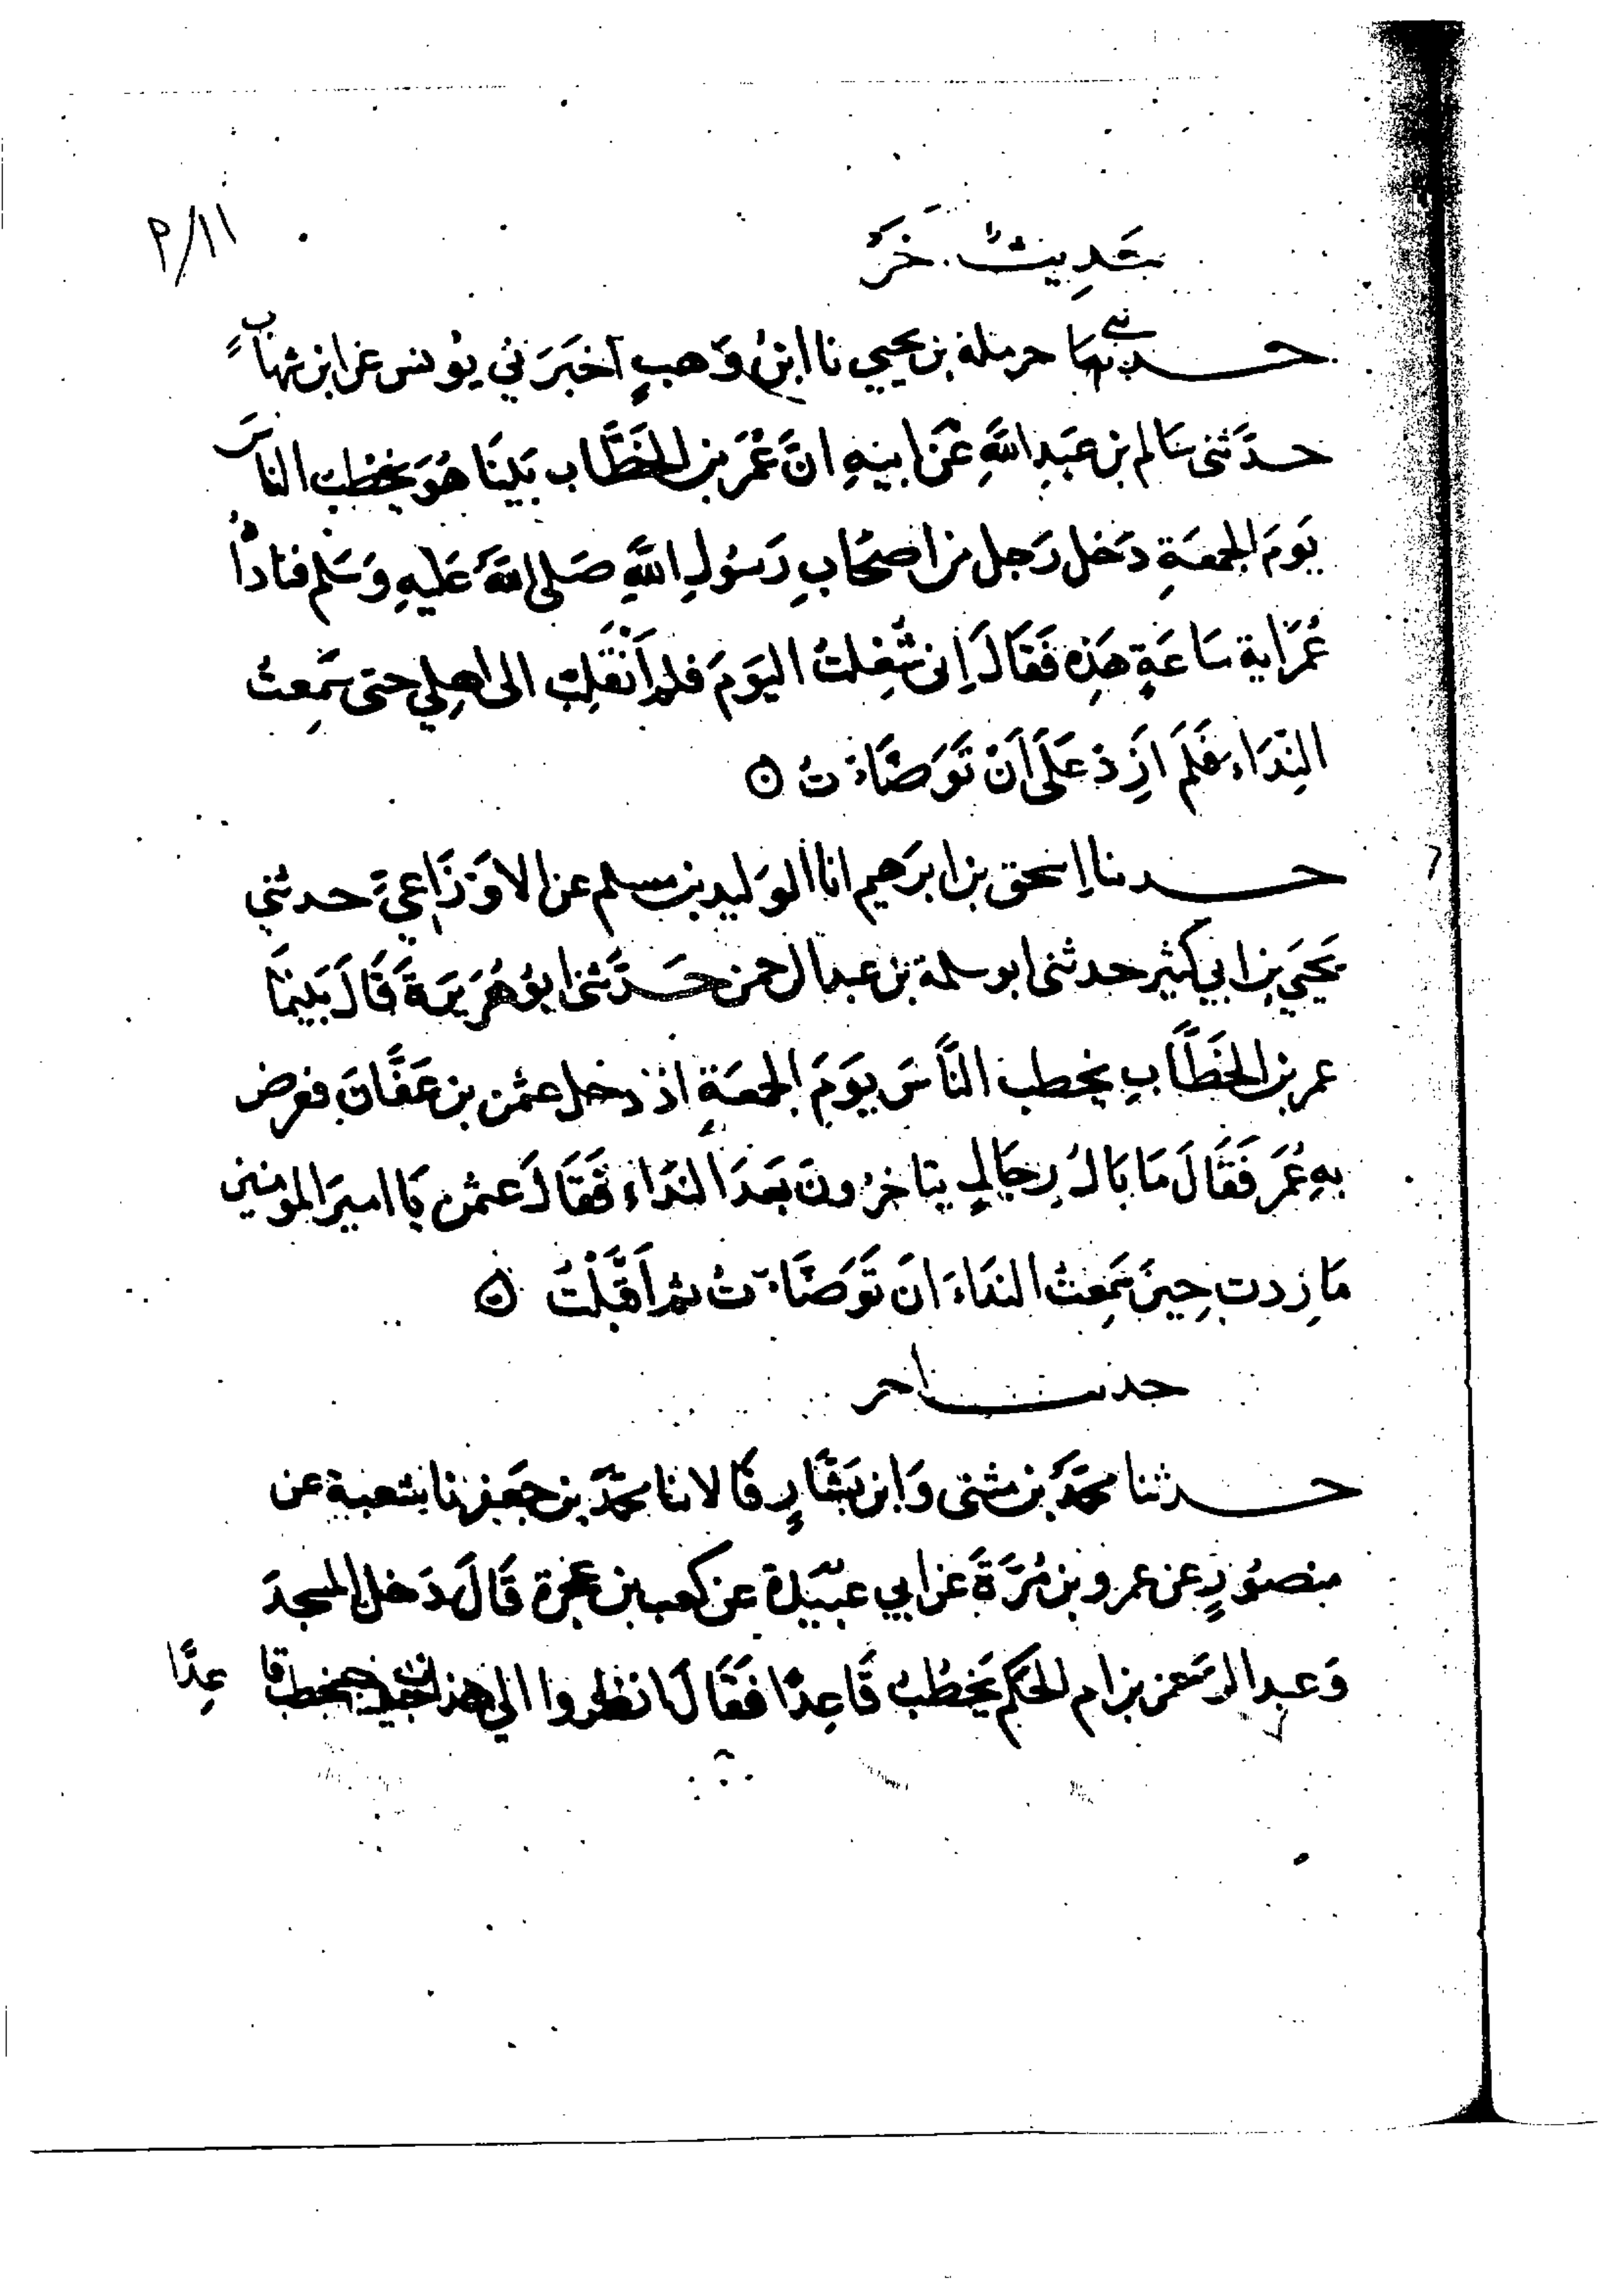 ١١/م
حَدِيثٌ اخَرُ
حدثنا حرملة بن يحيي نا ابنُ وَهبٍ آخبَرَني يُونس عن ابن شهابٍ
حدَّثنى سَالم بن عَبدِ اللَّهِ عَن ابيهِ انَّ عُمَرَ بن الخَطَّاب بَينَا هُوَ يخطب الناسَ
يَومَ الجمعَةِ دَخل رَجل من اصحَابِ رَسُولِ اللَّهِ صَلى اللَّهُ عَليهِ وَسَلم فنادَاهُ
عُمَرُ اية سَاعَةٍ هَذِه فَقَالَ اِنى شُغِلتُ اليَومَ فلم اَنْقَلِبْ الى اهِلي حتى سَمِعتُ
النِّدَاء فَلَم اَزِد عَلَى اَنْ تَوَضَّاءتُ ۞
حدثنا اِسحق بن ابرَهيم انا الوَليد بن مسلم عن الاوَزَاعِيّ حدثني
يَحيَي بن ابي كثير حدثنى ابو سلمة بن عبد الرحمن حَدَّثنى ابوُ هُرَيرَةَ قَالَ بَينمَا
عمر بن الخَطَّابِ يخطب النَّاسَ يَومَ الجمعَةِ اذ دخل عثمن بن عَفَّانَ فعرض
بهِ عُمَر فَقَالَ مَا بَالُ رِجَالٍ يتاخرُونَ بَعدَ النّدَاء فَقَالَ عثمن يَا اميرَ المومنين
مَا زدت حِينَ سَمِعتُ النداءَ انَ تَوَضَّاءتُ ثم اَقْبَلْتُ ۞
حديث اخر
حدثنا محَمَّد بن مثنى وَابن بَشَّارٍ قَالا نا محمّد بن جَعفر نا شعبة عن
منصُورٍ عن عمرو بن مُرَّةَ عن ابي عبَيدة عن كعب بن عجرة قَالَ دَخل المسجدَ
وَعبد الرحمن بن ام الحكم يَخطُبُ قَاعِدًا فَقَالَ انظروا الي هذا الخبيث يخطب قاعِدًا